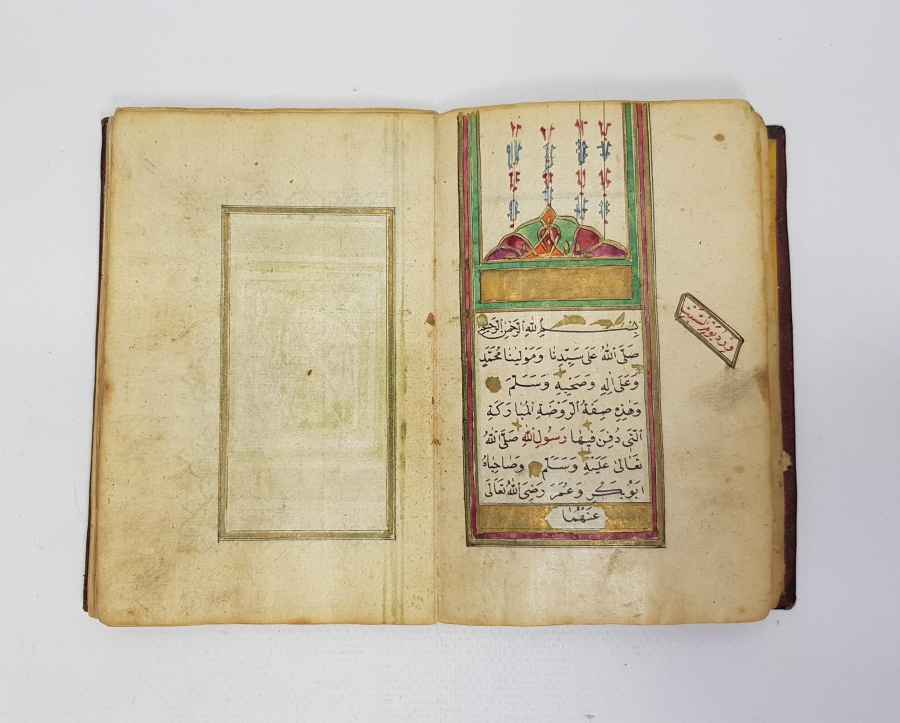 بِسْمِ اللهِ الرَّحْمٰنِ الرَّحِيمِ
صَلَّى اللهُ عَلَى سَيِّدِنَا وَمَوْلٰينَا مُحَمَّدٍ
وَعَلَى اٰلِهِ وَصَحْبِهِ وَسَلَّمَ
وَهٰذِهِ صِفَةُ الرَّوْضَةِ الْمُبَارَكَةِ
الَّتِى دُفِنَ فِيهَا رَسُولُ اللهِ صَلَّى اللهُ
تَعَالٰى عَلَيْهِ وَسَلَّمَ وَصَاحِبَاهُ
اَبُوبَكْرٍ وَعُمَرَ رَضِىَ اللهُ تَعَالٰى
عَنْهُمَا
ورد يوم السبت